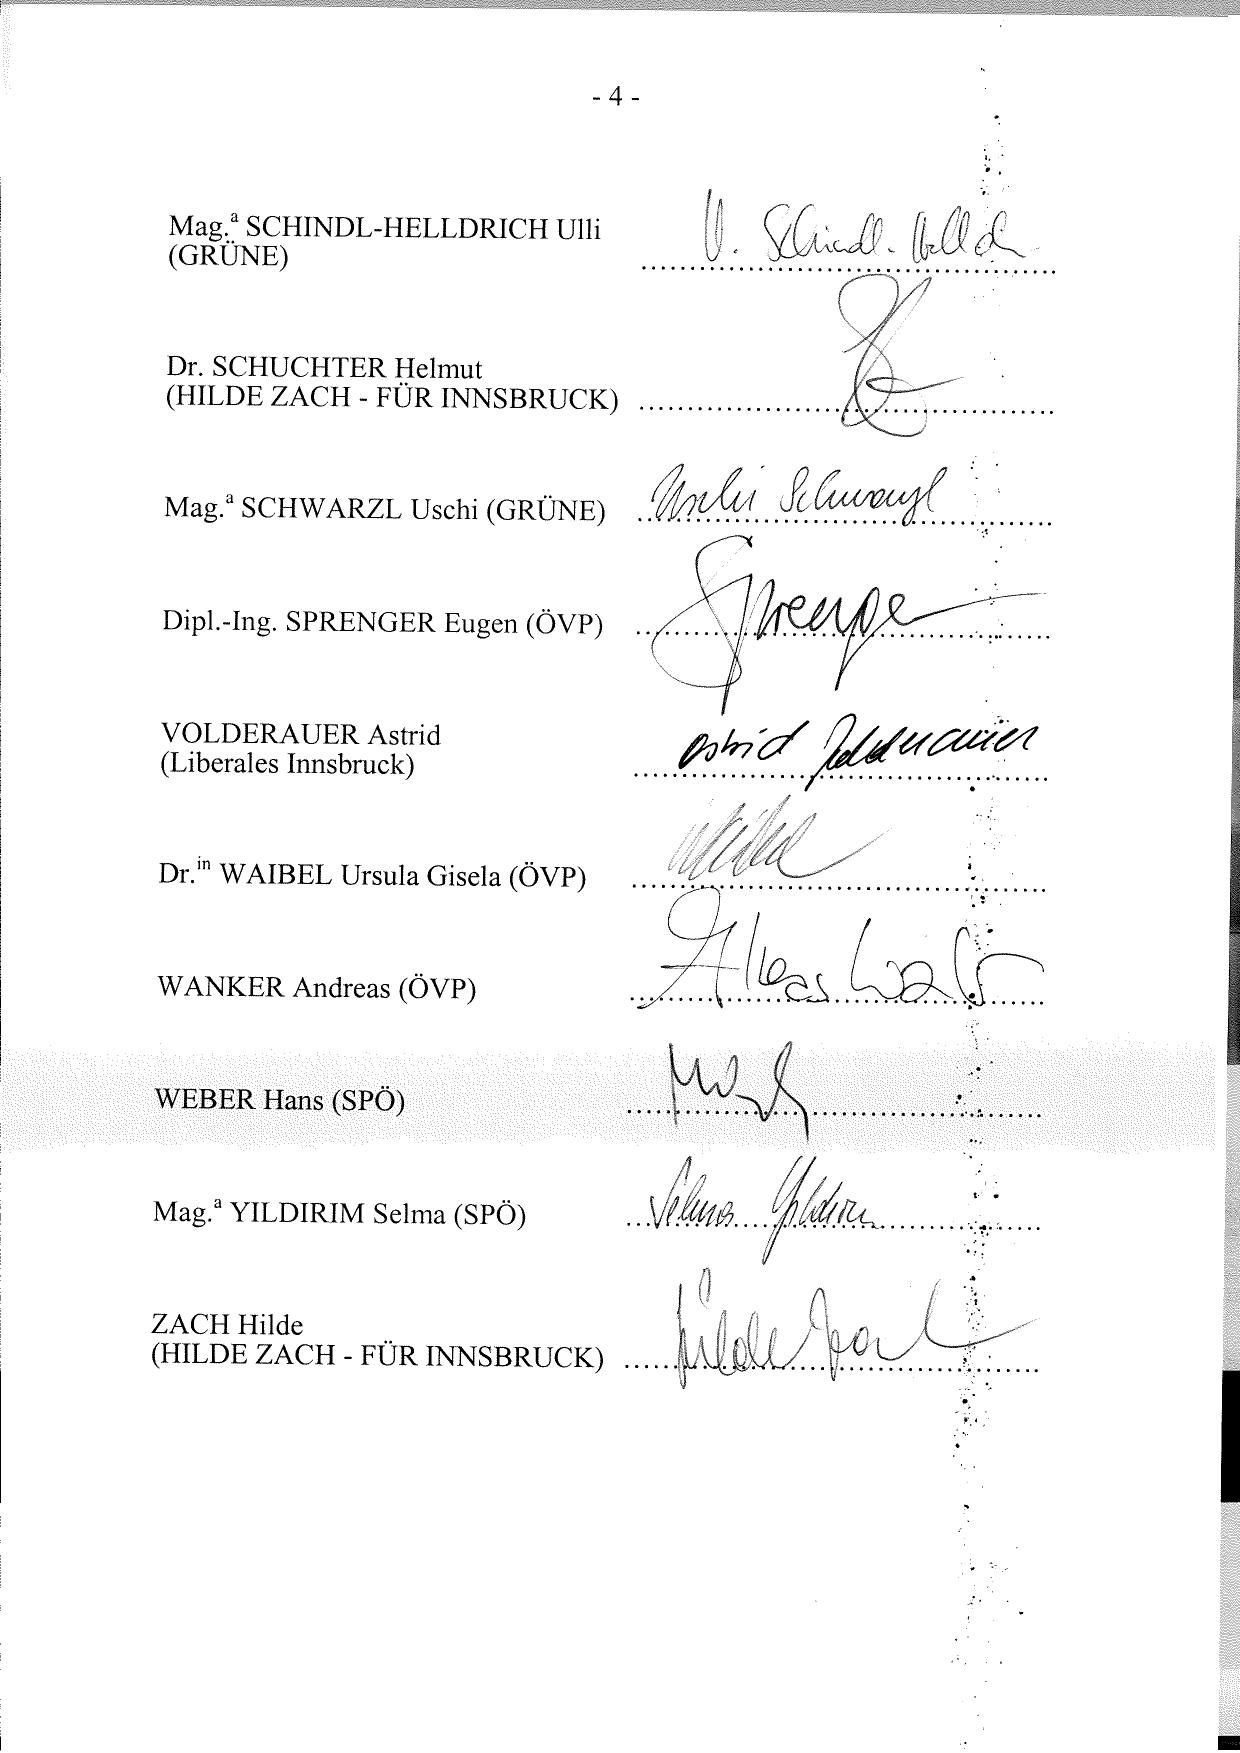 - 4 -
Mag.ª SCHINDL-HELLDRICH Ulli
(GRÜNE)
U. Schindl-Helld
Dr. SCHUCHTER Helmut
(HILDE ZACH - FÜR INNSBRUCK)
Mag.ª SCHWARZL Uschi (GRÜNE)
Uschi Schwarzl
Dipl.-Ing. SPRENGER Eugen (ÖVP)
Sprenger
VOLDERAUER Astrid
(Liberales Innsbruck)
Astrid Volderauer
Dr.ⁱⁿ WAIBEL Ursula Gisela (ÖVP)
WANKER Andreas (ÖVP)
WEBER Hans (SPÖ)
Mag.ª YILDIRIM Selma (SPÖ)
Selma Yildirim
ZACH Hilde
(HILDE ZACH - FÜR INNSBRUCK)
Hilde Zach